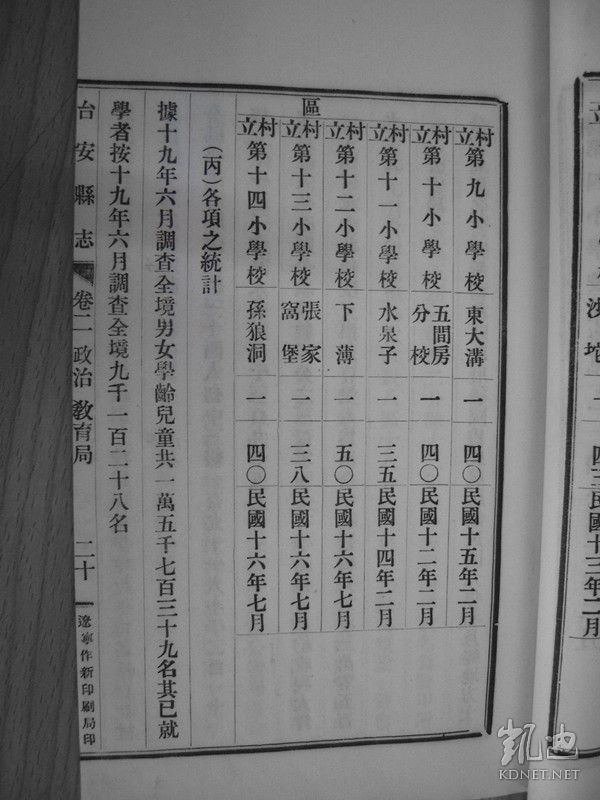 區
村立第九小學校 東大溝 一 四〇 民國十五年二月
村立第十小學校 五間房分校 一 四〇 民國十二年二月
村立第十一小學校 水泉子 一 三五 民國十四年二月
村立第十二小學校 下薄 一 五〇 民國十六年七月
村立第十三小學校 張家窩堡 一 三八 民國十六年七月
村立第十四小學校 孫狼洞 一 四〇 民國十六年七月
(丙)各項之統計
據十九年六月調查全境男女學齡兒童共一萬五千七百三十九名其已就
學者按十九年六月調查全境九千一百二十八名
台安縣志 卷二 政治 教育局 二十 遼寧作新印刷局印
凱迪
KDNET.NET